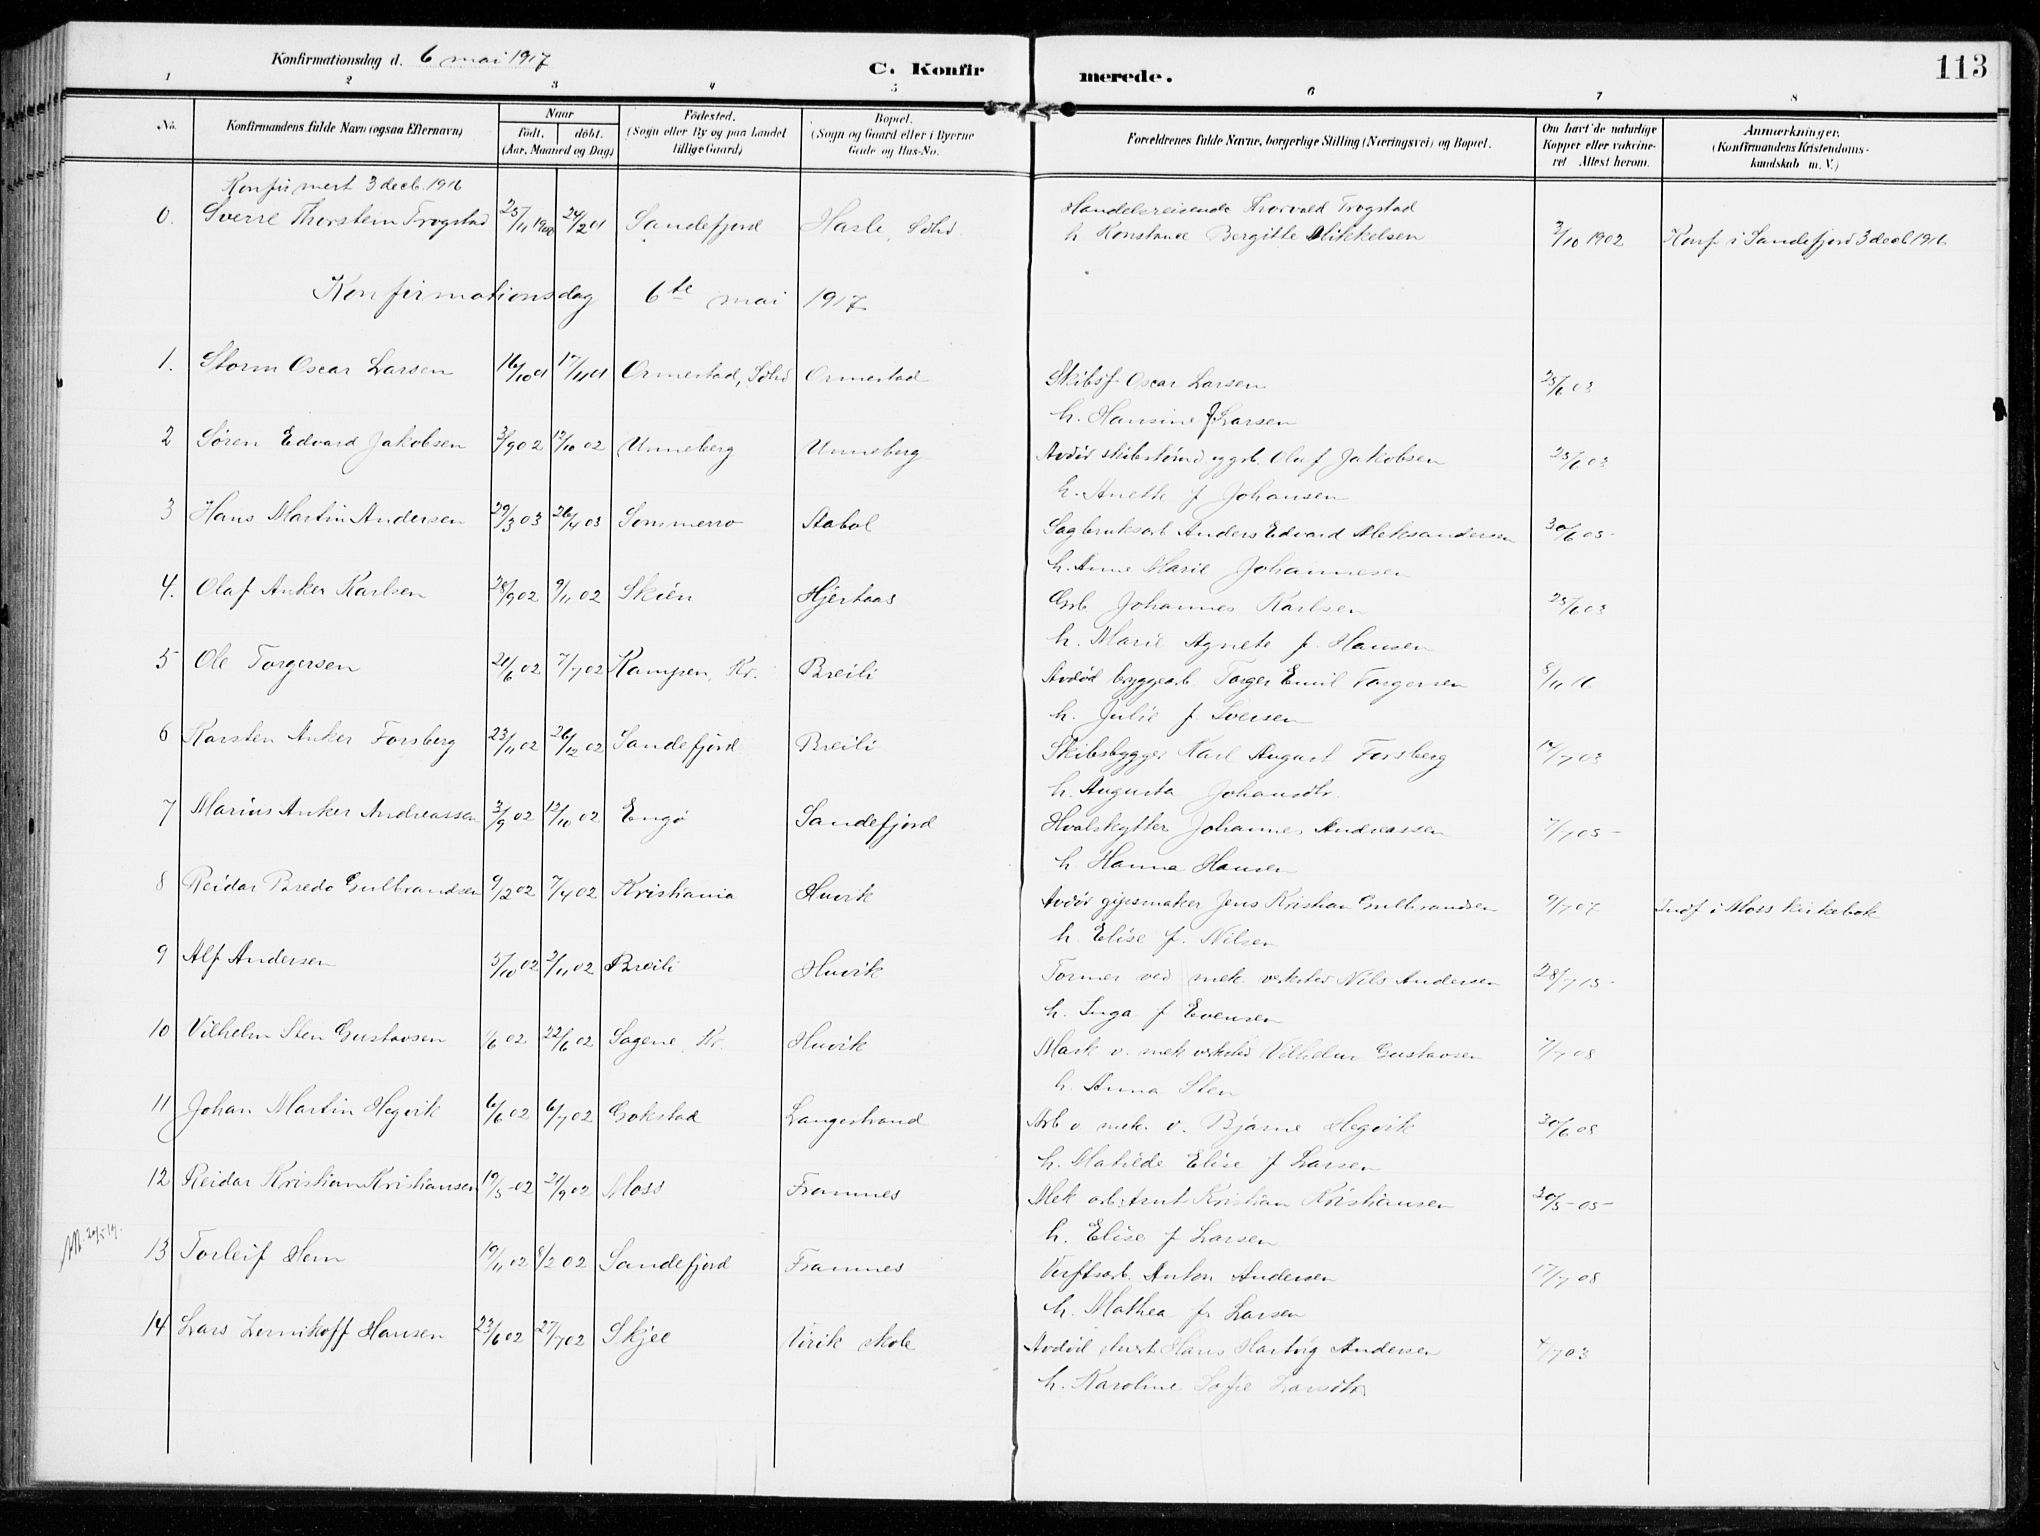 Konfirmationsdag d. 6 mai 1917
C. Konfirmerede.
113
1 2 3 4 5 6 7 8
No.
Konfirmandens fulde Navn (ogsaa Efternavn)
Naar
født. døbt.
(Aar, Maaned og Dag)
Fødested.
(Sogn eller By og paa Landet
tillige Gaard)
Bopæl.
(Sogn og Gaard eller i Byerne
Gade og Hus-No.
Forældrenes fulde Navne, borgerlige Stilling (Næringsvei) og Bopæl.
Om havt de naturlige
Kopper eller vakcine-
ret Attest herom.
Anmærkninger.
(Konfirmandens Kristendoms-
kundskab m. V.)
Konfirmert 3 decb. 1916
0. Sverre Thorstein Trogstad 25/11 1900 24/2 01 Sandefjord Hasle, Søhd Handelsreisende Thorvald Trogstad
h Konstance Bergitte Mikkelsen 3/10 1902 Konf i Sandefjord 3 decb 1916
Konfirmationsdag 6te mai 1917
1. Storm Oscar Larsen 16/10 01 17/11 01 Ormestad, Søhd Ormestad Skibsf. Oscar Larsen 25/6 03
h. Hansine f Larsen
2 Søren Edvard Jakobsen 3/9 02 12/10 02 Unneberg Unneberg Avdød skibstømd og grb. Olaf Jakobsen 25/6 03
h. Anette f Johansen
3 Hans Martin Andersen 29/3 03 26/4 03 Sommerro Aabol Sagbruksarb Anders Edvard Aleksandersen 30/6 05
h. Anne Marie Johannesen
4. Olaf Anker Karlsen 28/9 02 9/11 02 Skien Hjertaas Grb Johannes Karlsen 25/6 03
h. Marie Agnete f. Hansen
5 Ole Torgersen 21/6 02 7/7 02 Kampen, Kr. Breili Avdød bryggearb. Torger Emil Torgersen 8/11 16
h. Julie f Iversen
6 Karsten Anker Forsberg 23/11 02 26/12 02 Sandefjord Breili Skibsbygger Karl August Forsberg 14/7 03
h. Augusta Johansdtr.
7 Marius Anker Andreassen 3/9 02 12/10 02 Engø Sandefjord Hvalskytter Johannes Andreassen 7/7 05
h Hanna Hansen
8 Reidar Bredo Gulbrandsen 9/12 02 7/4 02 Kristiania Huvik Avdød gipsmaker Jens Kristian Gulbrandsen 9/7 07 Indf i Moss kirkebok
h. Elise f. Nilsen
9 Alf Andersen 5/10 02 2/11 02 Breili Huvik Former ved mek. verksted Nils Andersen 28/7 15
h. Inga f Evensen
10 Vilhelm Sten Gustavsen 1/6 02 22/6 02 Sagene, Kr. Huvik Mask v. mek verksted Vilhelm Gustavsen 7/7 08
h. Anna Sten
11 Johan Martin Hegvik 6/6 02 6/7 02 Gokstad Langestrand Arb v mek. v. Bjarne Hegvik 30/6 08
h. Matilde Elise f Larsen
12 Reidar Kristian Kristiansen 19/5 02 21/9 02 Moss Framnes Mek arb. Arnt Kristian Kristiansen 30/5 05
h. Elise f Larsen
13 Torleif Hem 19/11 02 8/2 02 Sandefjord Framnes Verftsarb. Anton Andersen 17/7 08
h. Mathea f. Larsen
14 Lars Zernikoff Hansen 23/6 02 27/7 02 Skjee Virik skole Avdød Hans Hartvig Andersen 4/7 03
h. Karoline Sofie Larsdtr